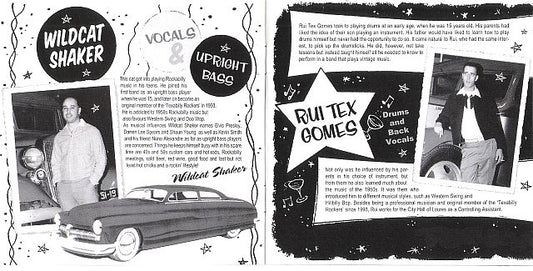 WILDCAT
SHAKER
VOCALS
&
UPRIGHT
BASS
This cat got into playing Rockabilly
music in his teens. He joined his
first band as an upright bass player
when he was 15, and later on become an
original member of the 'Texabilly Rockers' in 1993.
He is addicted to 1950s Rockabilly music but
also favours Western Swing and Doo Wop.
As musical influences Wildcat Shaker names Elvis Presley,
Darren Lee Spears and Shaun Young as well as Kevin Smith
and his friend Nuno Alexandre as far as upright bass players
are concerned. Things he keeps himself busy with in his spare
time are 40s and 50s custom cars and hot rods, Rockabilly
meetings, split beer, red wine, good food and last but not
least hot chicks and a rockin' lifestyle!
Wildcat Shaker
51-19
Rui Tex Gomes took to playing drums at an early age, when he was 15 years old. His parents had
liked the idea of their son playing an instrument. His father would have liked to learn how to play
drums himself but never had the opportunity to do so. It came natural to Rui, who had the same inter-
est, to pick up the drumsticks. He did, however, not take
lessons but instead taught himself all he needed to know to
perform in a band that plays vintage music.
RUI TEX
GOMES
Drums
and
Back
Vocals
Not only was he influenced by his par-
ents in his choice of instrument, but
from them he also learned much about
the music of the 1950s. It was them who
introduced him to different musical styles, such as Western Swing and
Hillbilly Bop. Besides being a professional musician and original member of the 'Texabilly
Rockers' since 1993, Rui works for the City Hall of Loures as a Controlling Assistant.